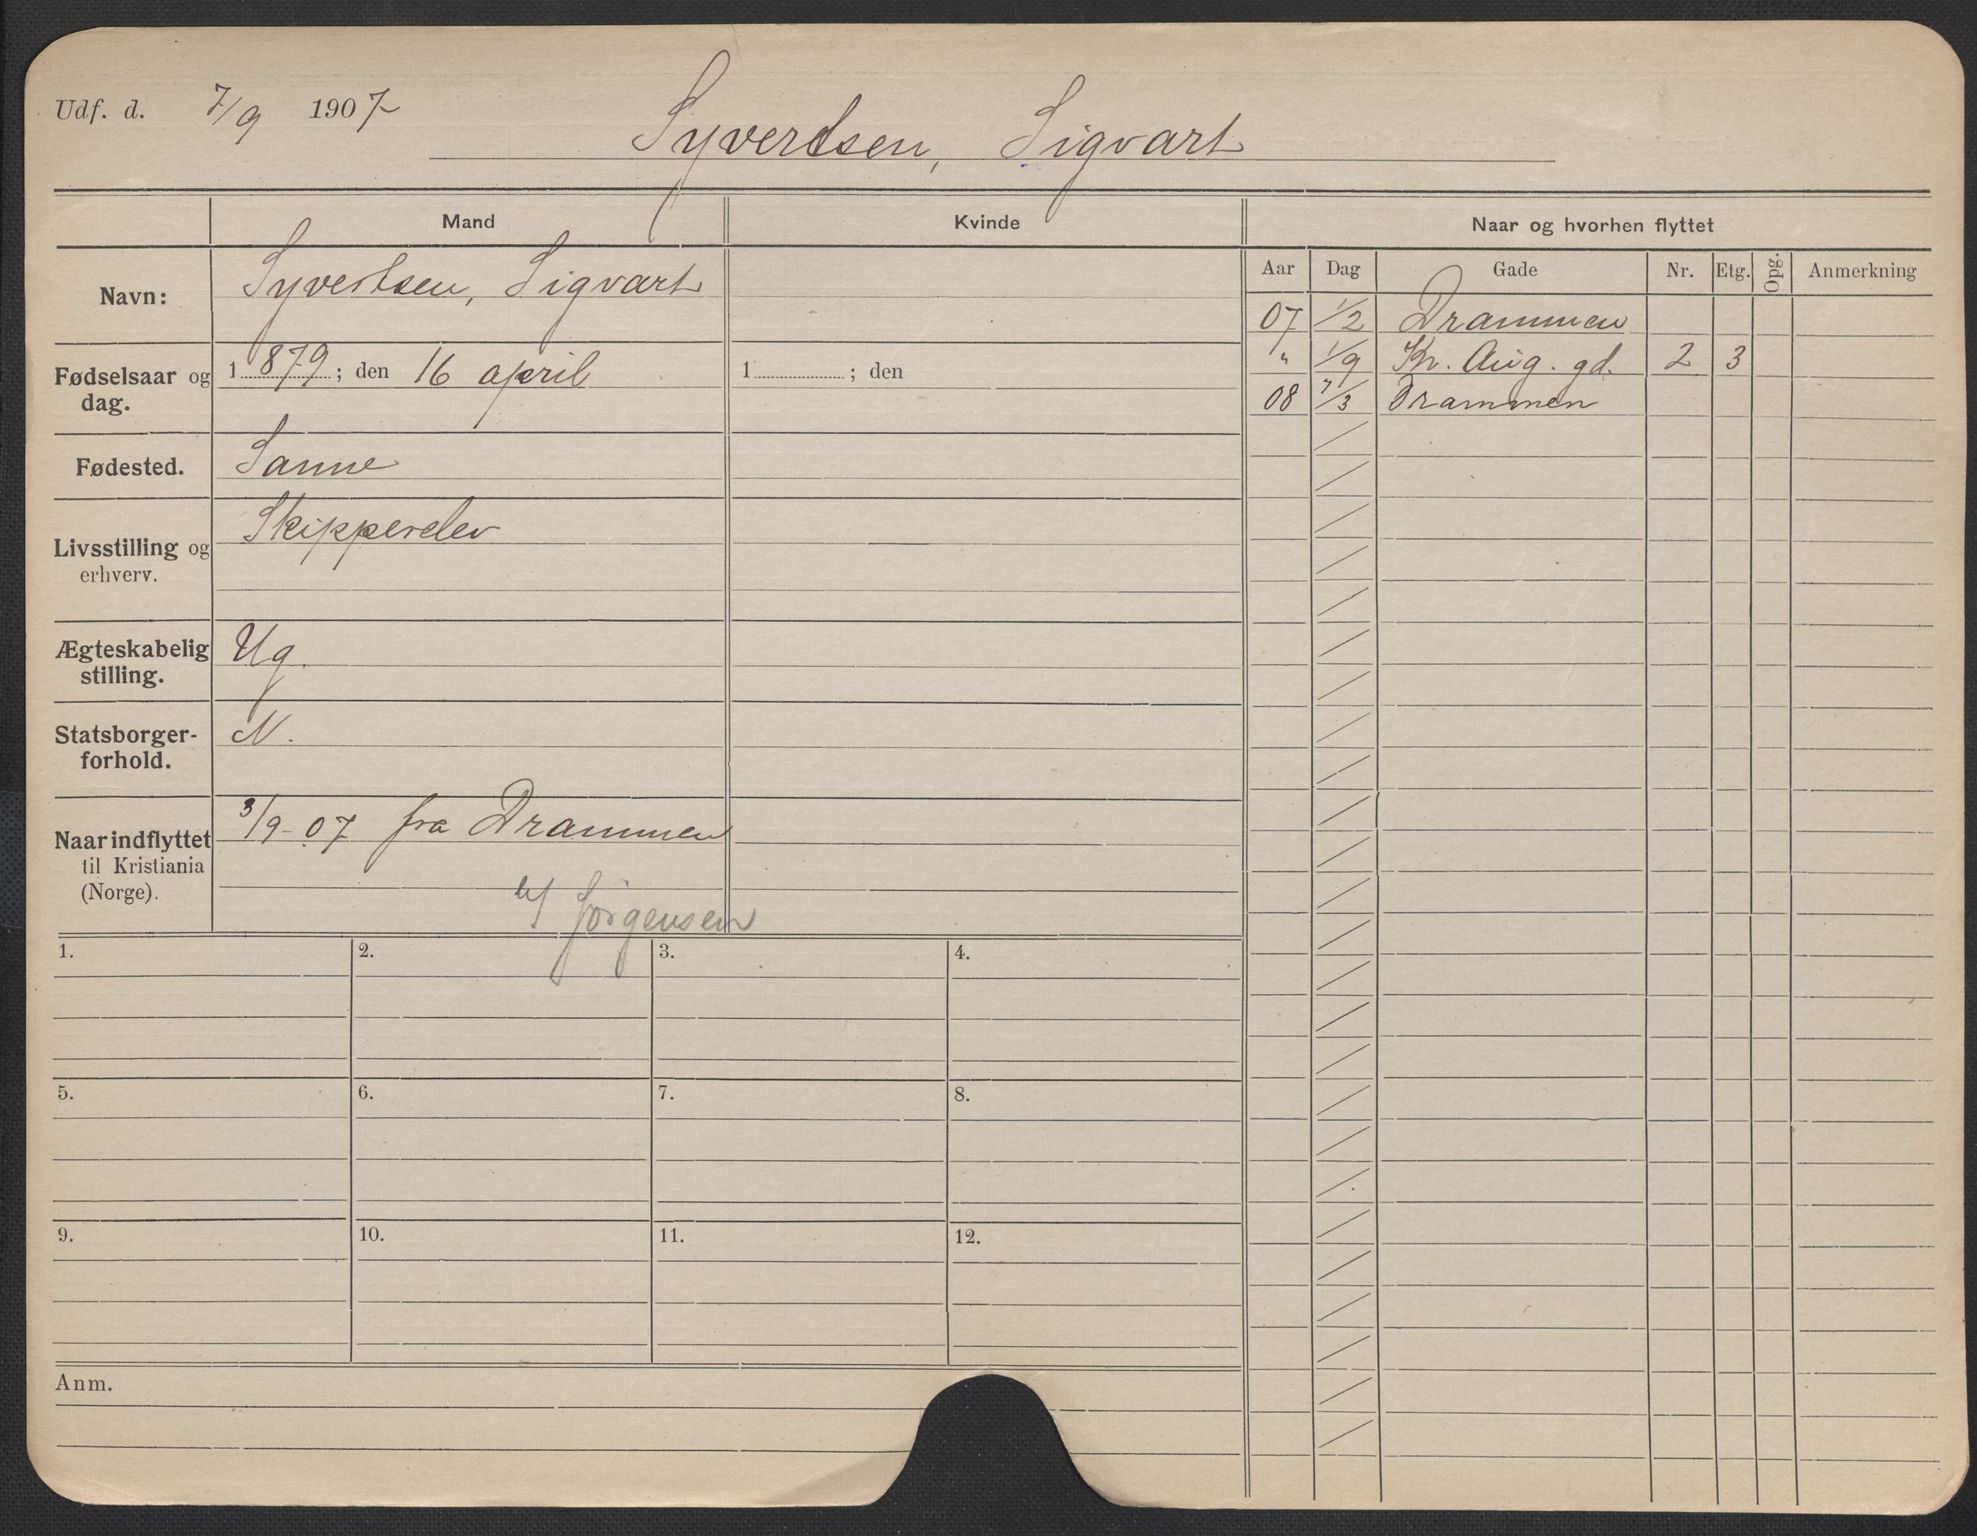 Udf. d. 7/9 1907
Syvertsen, Sigvart
Mand
Kvinde
Naar og hvorhen flyttet
Aar Dag Gade Nr. Etg. Opg. Anmerkning
Navn: Syvertsen, Sigvart
Fødselsaar og dag. 1879; den 16 april
1 ; den
Fødested. Sanne
Livsstilling og erhverv. Skipperelev
Ægteskabelig stilling. Ug.
Statsborger-forhold. N.
Naar indflyttet til Kristiania (Norge). 3/9-07 fra Drammen
Jørgensen
07 1/2 Drammen
" 1/9 Kr. Aug. gd. 2 3
08 7/3 Drammen
1. 2. 3. 4.
5. 6. 7. 8.
9. 10. 11. 12.
Anm.